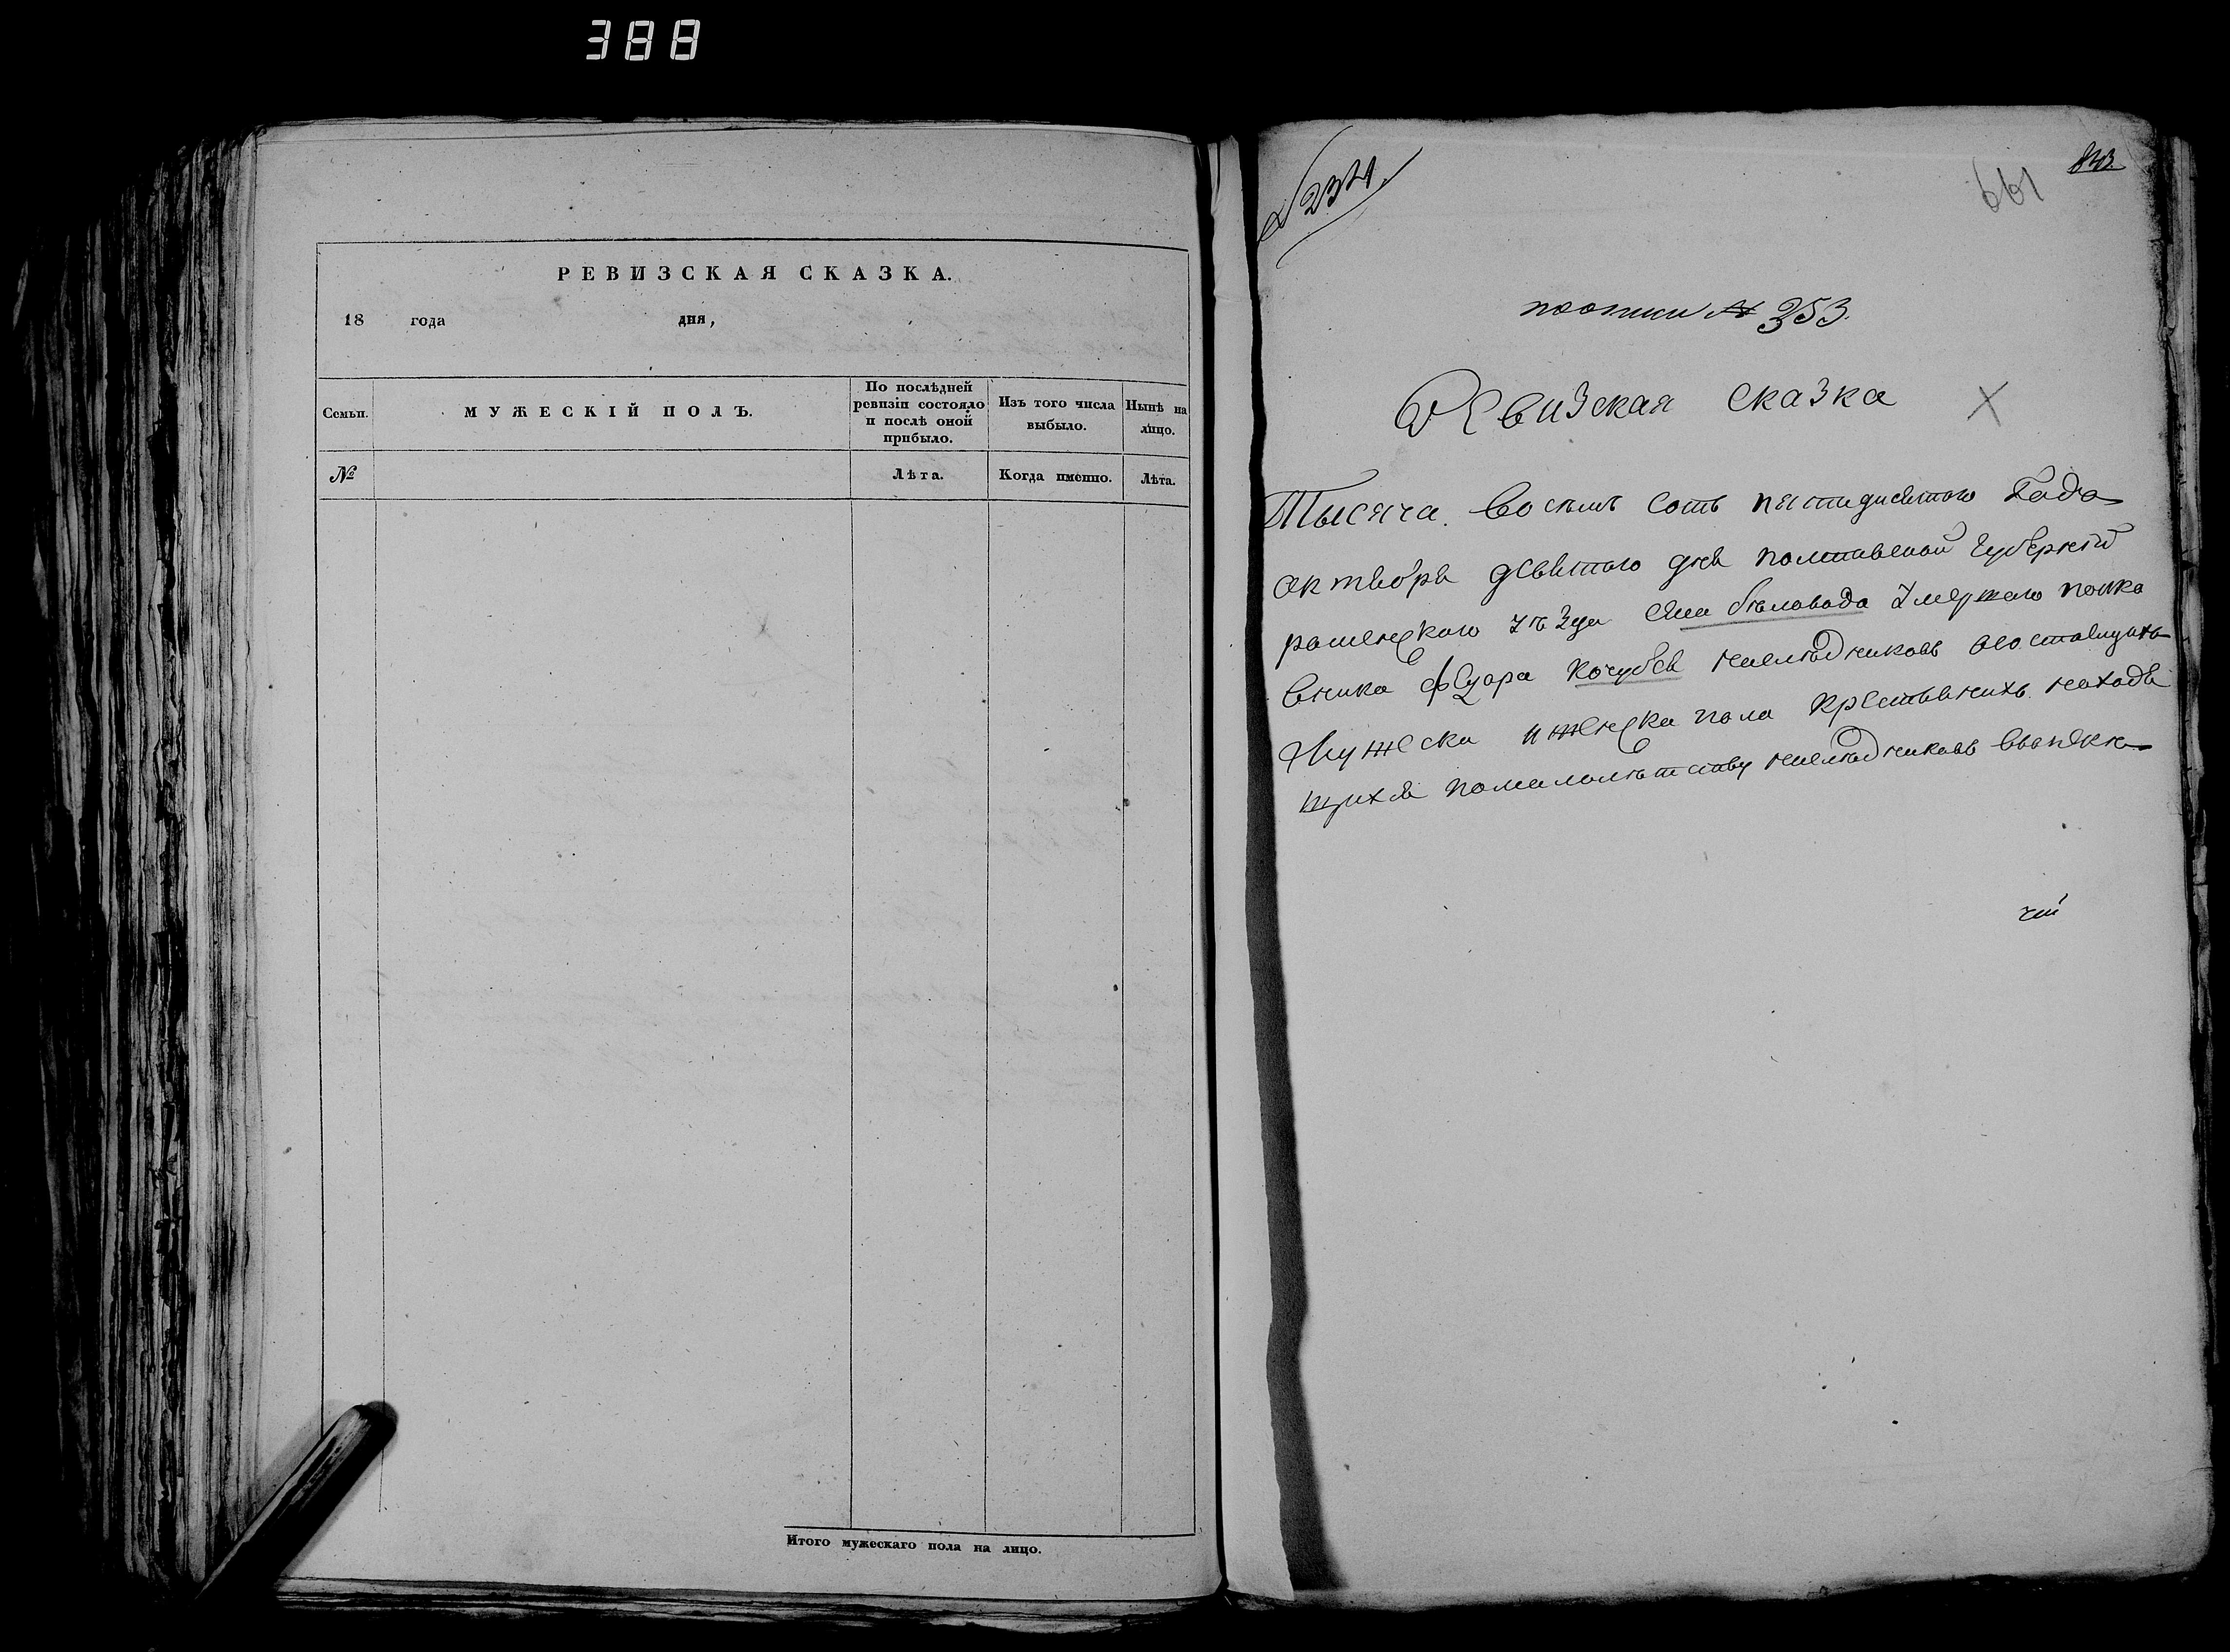 388
РЕВИЗСКАЯ СКАЗКА.
18 года дня,
Семьи.
МУЖЕСКІЙ ПОЛЪ.
По послѣдней ревизіи состояло и послѣ оной прибыло.
Изъ того числа выбыло.
Нынѣ на лицо.
№
Лѣта.
Когда именно.
Лѣта.
Итого мужескаго пола на лицо.
661
№ 353.
Ревизская сказка
Тысяча восемъ сотъ пятидесятого Года
октября девятого дня полтавской Губерніи
роменского уѣзда села бѣловода умершого полко
вника Федора Кочубея наслѣдниковъ о состоящихъ
Мужеска и женска пола крестьянихъ находя
щихся помалолѣтству наслѣдниковъ